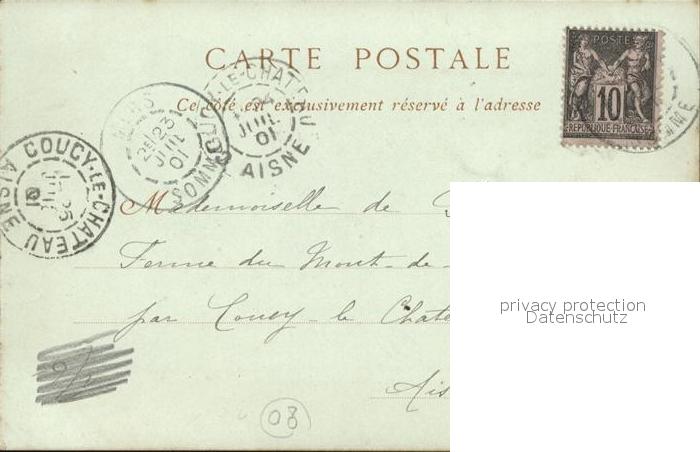 CARTE POSTALE
Ce côté est exclusivement réservé à l'adresse
POSTE
10
REPUBLIQUE FRANÇAISE
COUCY-LE-CHATEAU
AISNE
25
JUIL
01
23
JUIL
01
SOMME
LE-CHATEAU
JUIL
01
AISNE
Mademoiselle de
Ferme du Mont-de-
par Coucy-le Chate
Ais
08
privacy protection
Datenschutz